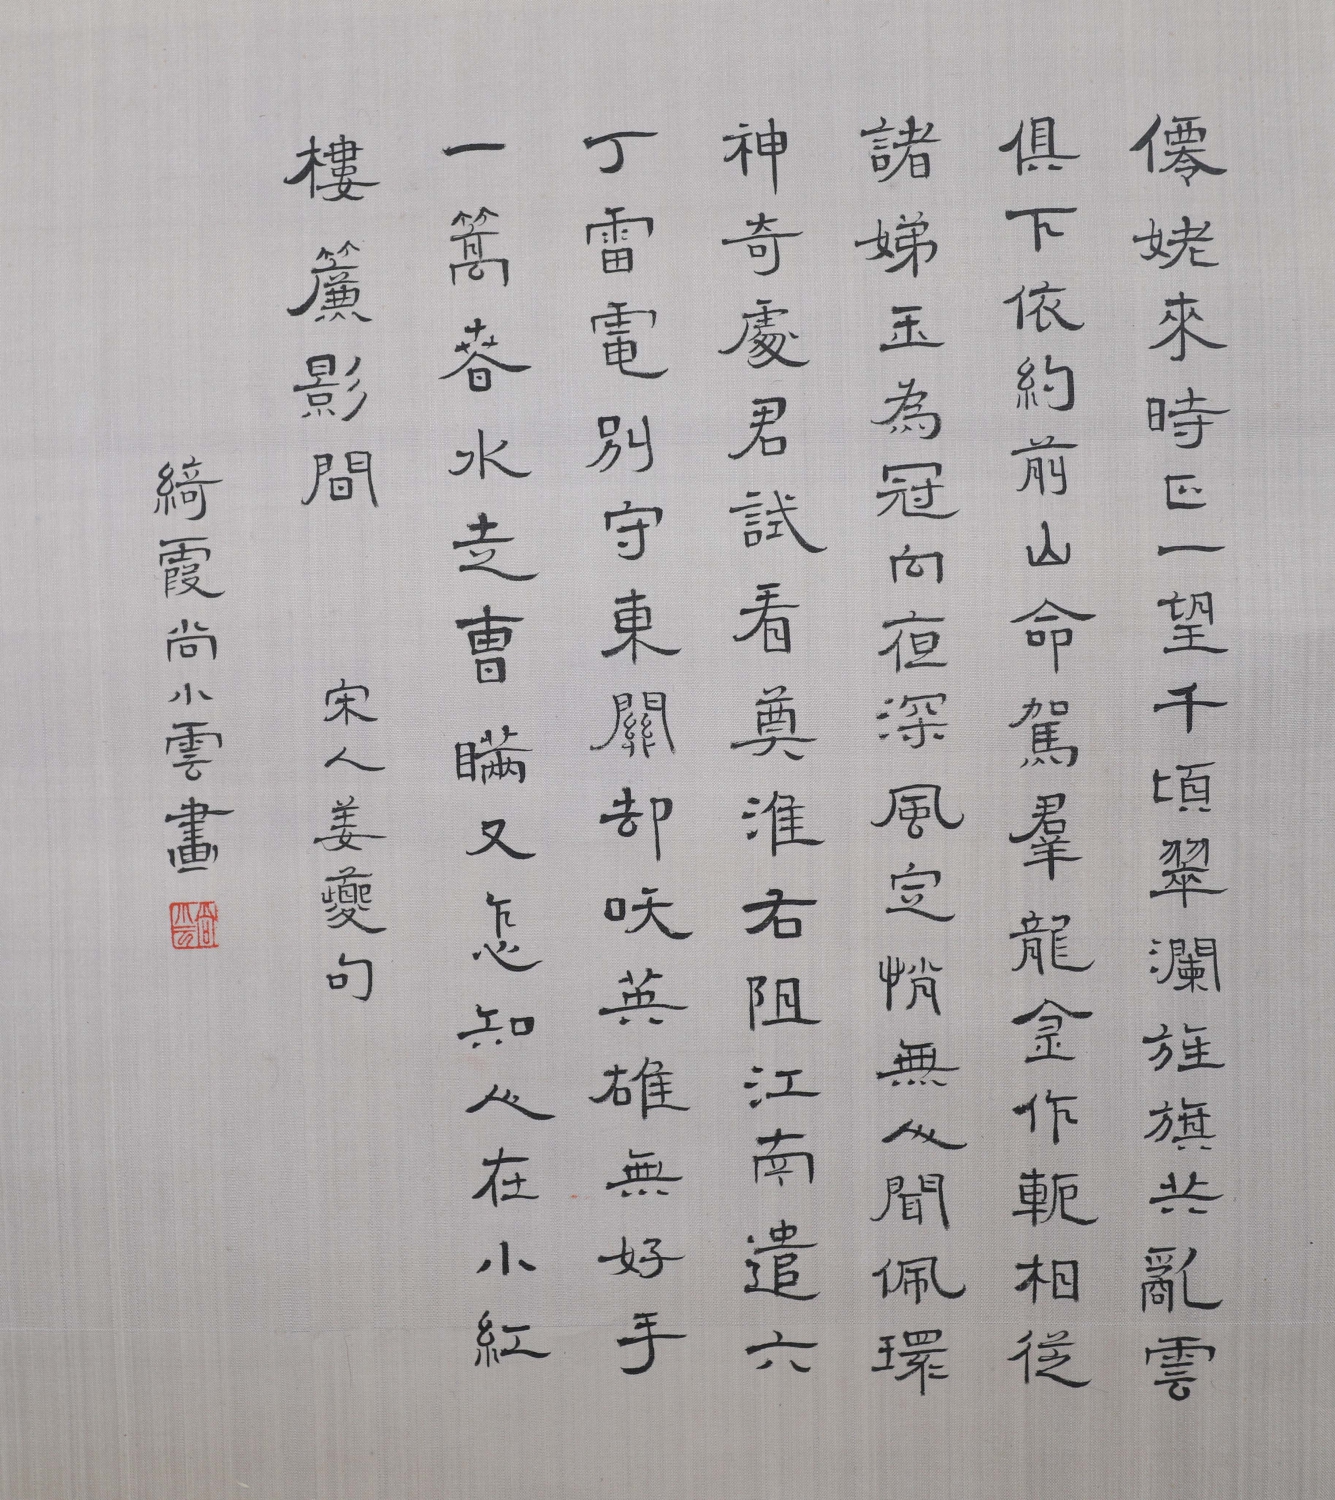 僊姥來時正一望千頃翠瀾旌旗共亂雲
俱下依約前山命駕羣龍金作軛相從
諸娣玉為冠向夜深風定悄無人聞佩環
神奇處君試看奠淮右阻江南遣六
丁雷電別守東關却咲英雄無好手
一篙春水走曹瞞又怎知人在小紅
樓簾影間
宋人姜夔句
綺霞尚小雲畫
尚小雲